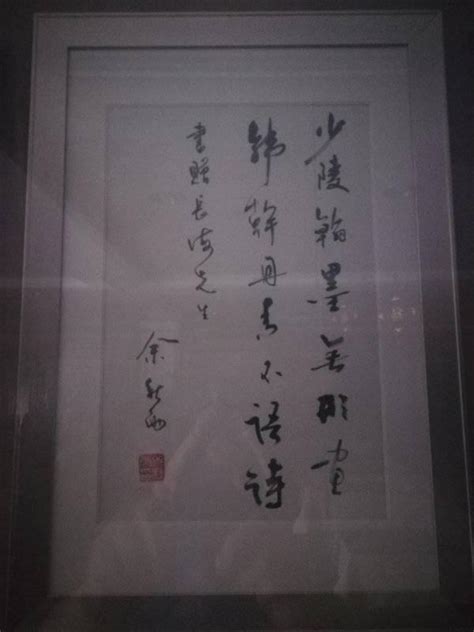 少陵翰墨無形画
韩幹丹青不语诗
书赠长海先生
余秋雨